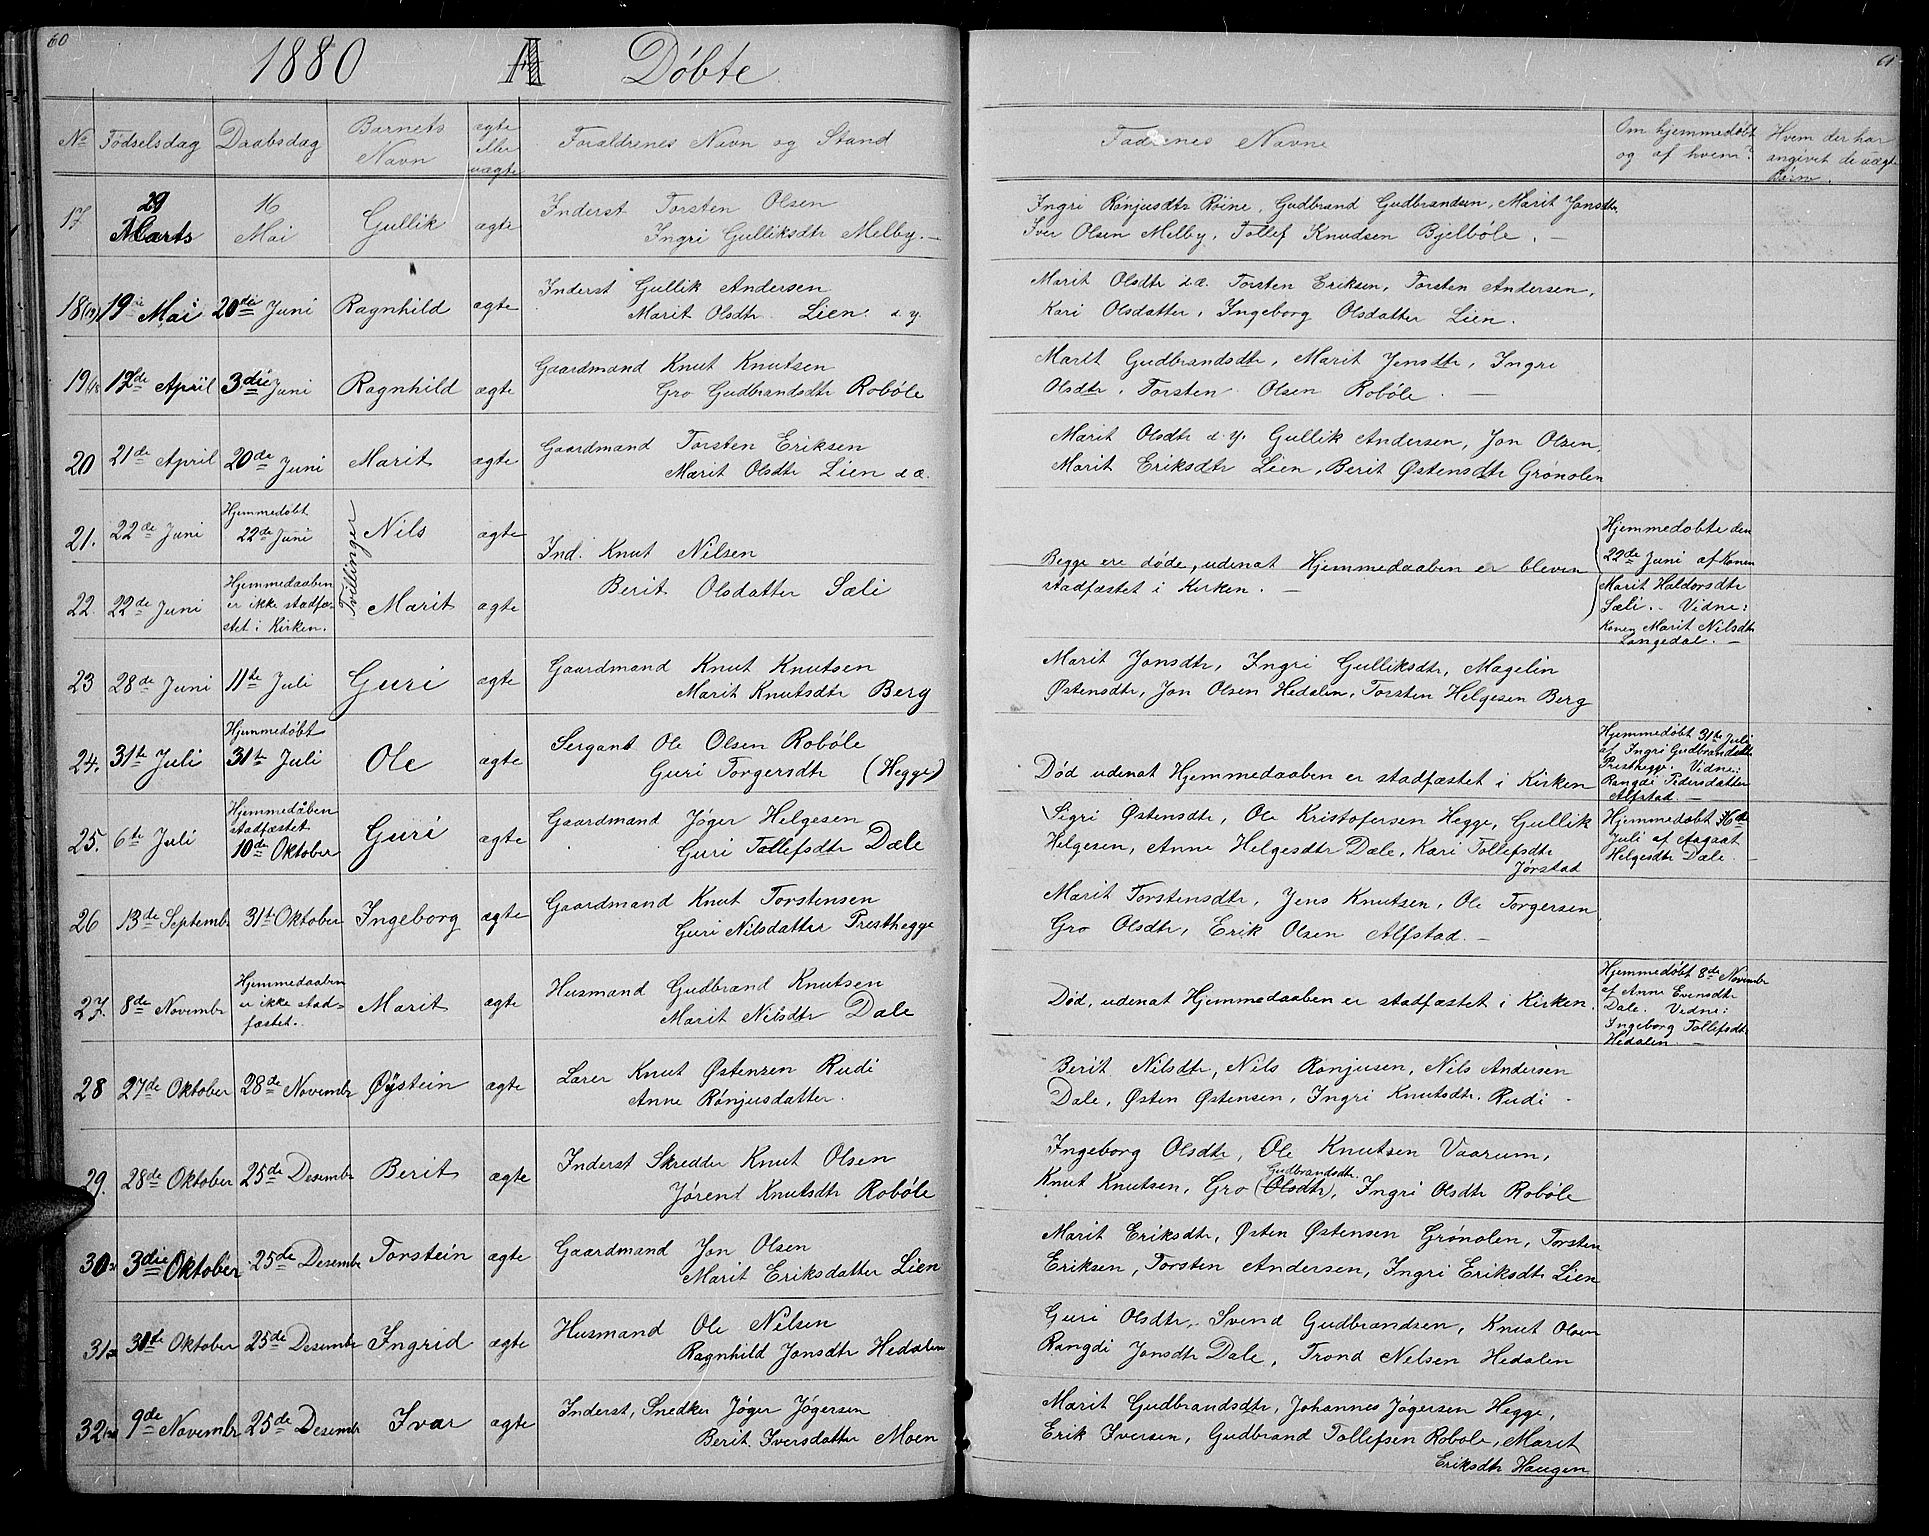 60
1880 A Døbte.
№ Fødselsdag Daabsdag Barnets Navn ægte eller uægte Forældrenes Navn og Stand
17 29 Marts 16 Mai Gullik ægte Inderst Torsten Olsen
Ingri Gulliksdtr Melby. —
18 19de Mai 20de Juni Ragnhild ægte Inderst Gullik Andersen
Marit Olsdtr. Lien d. y.
19 17de April 3die Juni Ragnhild ægte Gaardmand Knut Knutsen
Gro Gudbrandsdtr Robøle
20 21de April 20de Juni Marit ægte Gaardmand Torsten Eriksen
Marit Olsdtr Lien d. æ.
21. 22de Juni Hjemmedøbt 22de Juni Tvillinger Nils ægte
Ind. Knut Nilsen
Berit Olsdatter Sæli
22. 22de Juni Hjemmedaaben er ikke stadfæstet i Kirken. Marit ægte
23 28de Juni 11te Juli Guri ægte Gaardmand Knut Knutsen
Marit Knutsdtr Berg
24. 31te Juli Hjemmedøbt 31te Juli Ole ægte Sergant Ole Olsen Robøle
Guri Torgersdtr (Hegge)
25. 6te Juli Hjemmedåben stadfæstet 10de Oktober Guri ægte Gaardmand Jøger Helgesen
Guri Tollefsdtr Dale
26 13de Septembr 31t Oktober Ingeborg ægte Gaardmand Knut Torstensen
Guri Nilsdatter Presthegge
27. 8de Novembr Hjemmedaaben er ikke stadfæstet. Marit ægte Husmand Gudbrand Knutsen
Marit Nilsdtr Dale
28 27de Oktober 28de Novembr Øystein ægte Lærer Knut Østensen Rudi
Anne Rønjusdatter.
29. 28de Oktober 25de Desembr Berit ægte Inderst Skredder Knut Olsen
Jørend Knutsdtr Robøle
30 3die Oktober 25de Desembr Torstein ægte Gaardmand Jon Olsen
Marit Eriksdatter Lien
31 31te Oktober 25de Desembr Ingrid ægte Husmand Ole Nilsen
Ragnhild Jonsdtr Hedalen
32 9de Novembr 25de Desembr Ivar ægte Inderst, Snedker Jøger Jøgersen
Berit Iversdatter Moen
61
Faddrenes Navne Om hjemmedøbt og af hvem? Hvem der har angivet de uægte Børn.
Ingri Rønjusdtr Røine, Gudbrand Gudbrandsen, Marit Jonsdtr,
Iver Olsen Melby, Tollef Knudsen Bjelbøle. —
Marit Olsdtr d. æ. Torsten Eriksen, Torsten Andersen,
Kari Olsdatter, Ingeborg Olsdatter Lien.
Marit Gudbrandsdtr, Marit Jensdtr, Ingri
Olsdtr, Torsten Olsen Robøle. —
Marit Olsdtr d. y. Gullik Andersen, Jon Olsen,
Marit Eriksdtr Lien, Berit Østensdtr Grønolen
Begge ere døde, udenat Hjemmedaaben er bleven
stadfæstet i Kirken. —
Hjemmedøbte den
22de Juni af Konen
Marit Haldorsdtr
Sæli. - Vidne:
Konen Marit Nilsdtr
Langedal. —
Marit Jonsdtr, Ingri Gulliksdtr, Magelin
Østensdtr, Jon Olsen Hedalen, Torsten Helgesen Berg
Død udenat Hjemmedaaben er stadfæstet i Kirken
Hjemmedøbt 31te Juli
af Ingri Gudbrandsdtr
Presthegge. Vidne:
Rangdi Pedersdatter
Alfstad. —
Sigri Østensdtr, Ole Kristofersen Hegge, Gullik
Helgesen, Anne Helgesdtr Dale, Kari Tollefsdtr
Jørstad
Hjemmedøbt 16de
Juli af Aagaat
Helgesdtr Dale.
Marit Torstensdtr, Jens Knutsen, Ole Torgersen,
Gro Olsdtr, Erik Olsen Alfstad. —
Død, udenat Hjemmedaaben er stadfæstet i Kirken.
Hjemmedøbt 8de Novembr
af Anne Evensdtr
Dale. Vidne:
Ingeborg Tollefsdtr
Hedalen —
Berit Nilsdtr, Nils Rønjusen, Nils Andersen
Dale, Østen Østensen, Ingri Knutsdtr. Rudi -
Ingeborg Olsdtr, Ole Knutsen Vaarum,
Knut Knutsen, Gro (Olsdtr) Gudbrandsdtr., Ingri Olsdtr Robøle
Marit Eriksdtr, Østen Østensen Grønolen, Torsten
Eriksen, Torsten Andersen, Ingri Eriksdtr Lien
Guri Olsdtr, Svend Gudbrandsen, Knut Olsen
Rangdi Jonsdtr Dale, Trond Nelsen Hedalen
Marit Gudbrandsdtr, Johannes Jøgersen Hegge,
Erik Iversen, Gudbrand Tollefsen Robøle, Marit
Eriksdtr Haugen